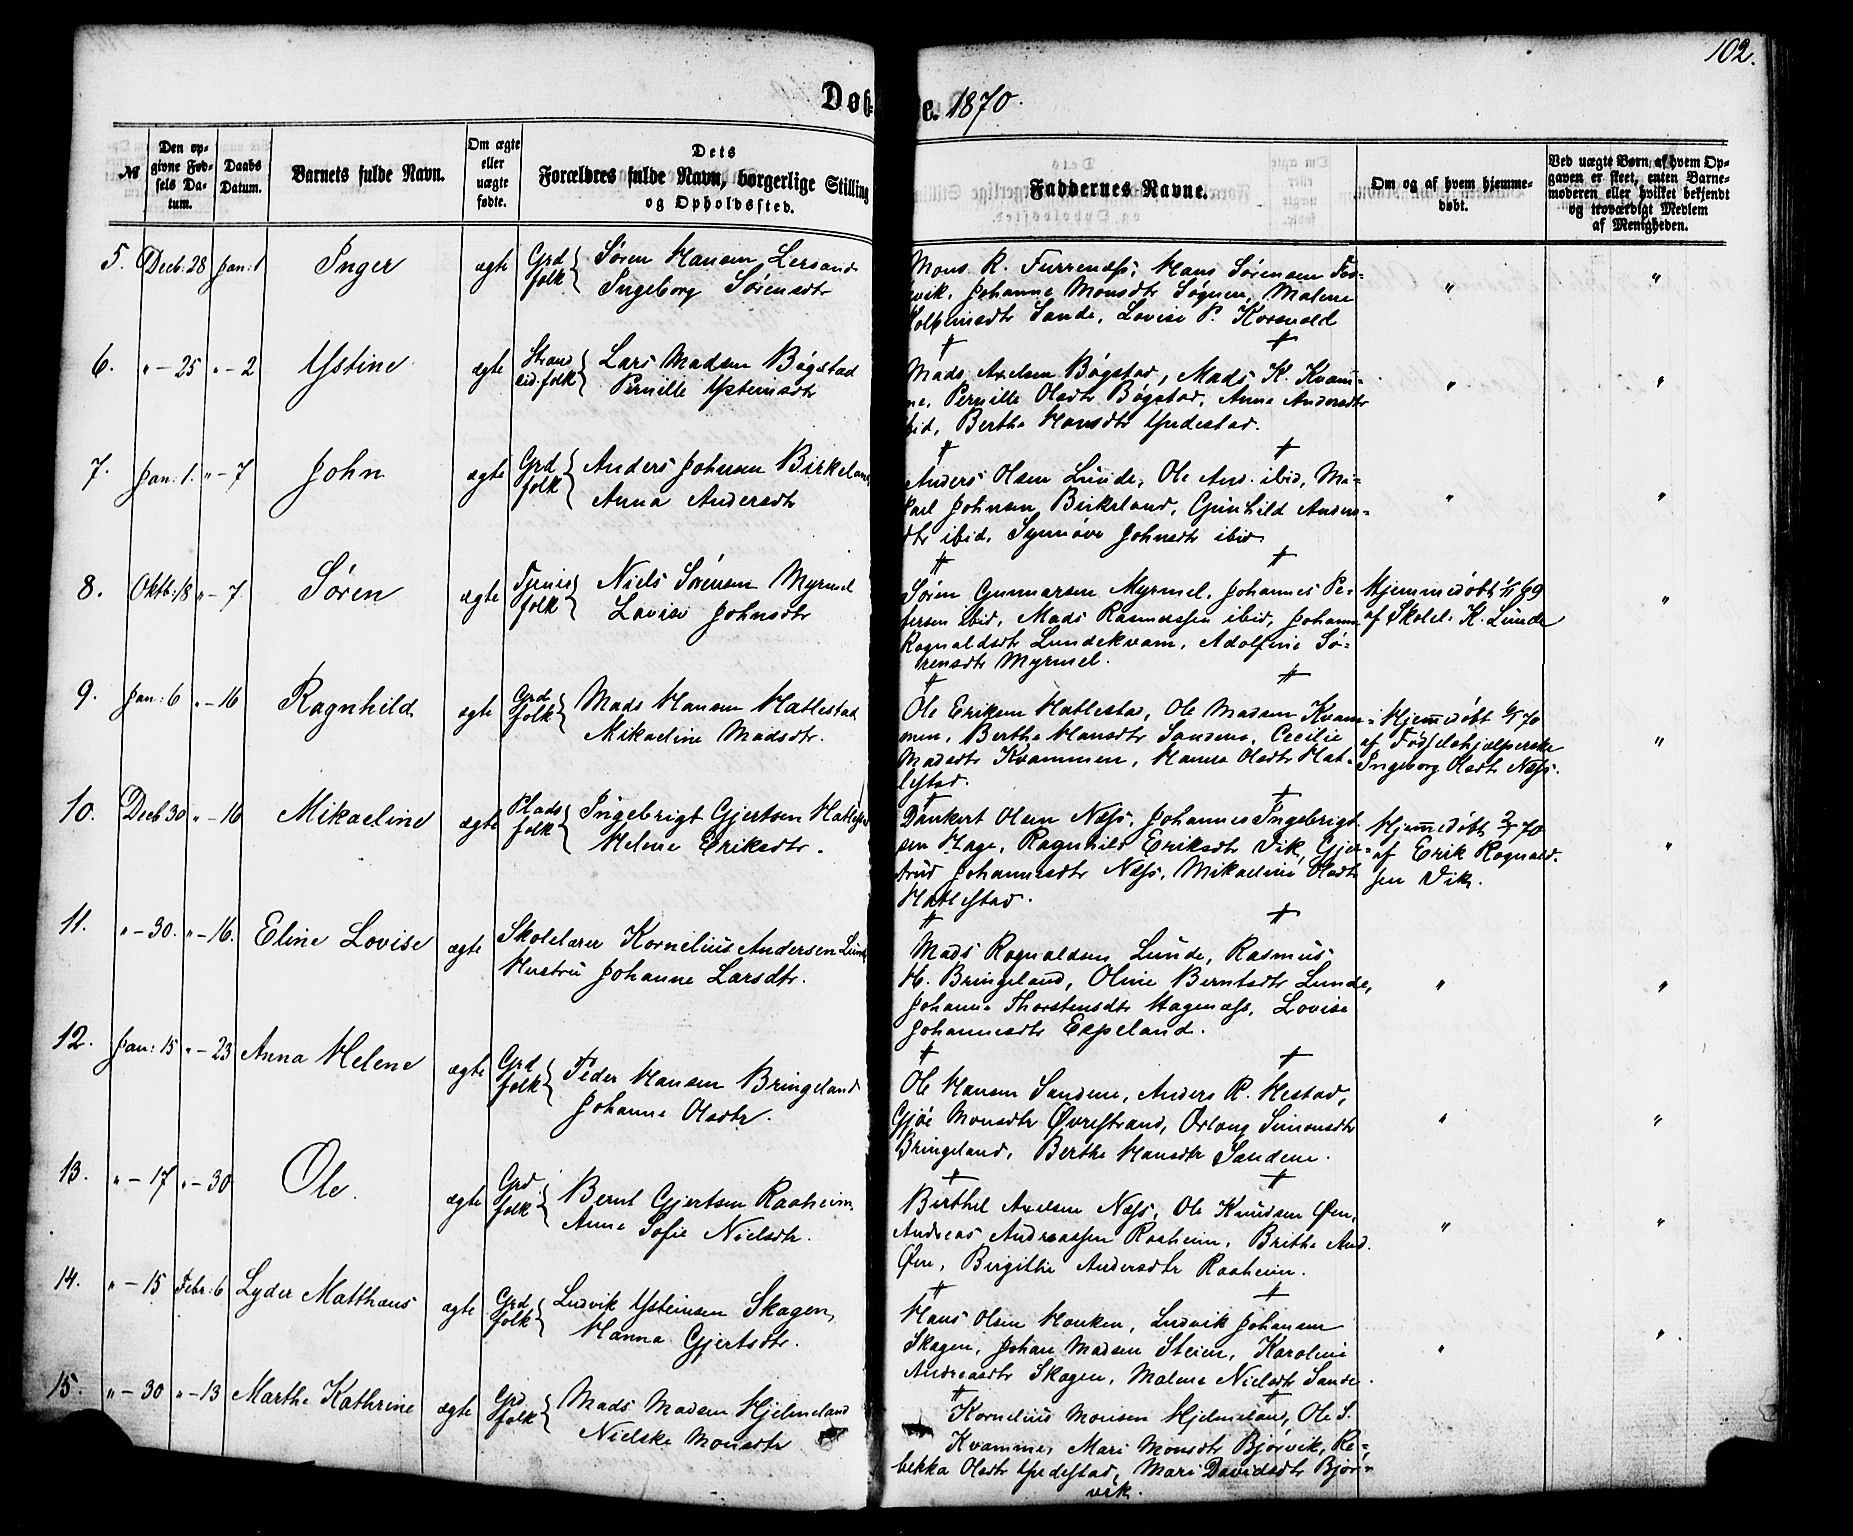 102.
Døb- te. 1870.
№
Den op-
givne Fød-
sels Da-
tum.
Daabs
Datum.
Barnets fulde Navn.
Om ægte
eller
uægte
fødte.
Dets
Forældres fulde Navn, borgerlige Stilling
og Opholdssted.
Faddernes Navne.
Om og af hvem hjemme-
døbt.
Ved uægte Børn, af hvem Op-
gaven er skeet, enten Barne-
moderen eller hvilket bekjendt
og troværdigt Medlem
af Menigheden.
5. Decb: 28 Jan: 1 Inger ægte Grd folk Sören Hansen Lersund
Ingeborg Sörensdtr
Mons R. Furrenæss, Hans Sörensen
Johanne Monsdtr Sögnen, Malene
Sande, Lovise P. Korsvold " "
6. " - 25 " - 2 Ystine ægte Strand sid. folk Lars Madsen Bögstad
Pernille Ysteinsdtr
Mads Axelsen Bögstad, Mads K. Kvam-
me, Pernille Olsdtr Bögstad, Anne Andersdtr
ibid, Berthe Hansdtr Yndestad. " "
7. Jan: 1. " - 7 John ægte Grd folk Anders Johnsen Birkeland
Anna Andersdtr
Anders Olsen Lunde, Ole And. ibid, Mi-
kael Johnsen Birkeland, Gunhild Anders-
dtr ibid, Synnöve Johnsdtr ibid " "
8. Oktb: 18 " - 7 Sören ægte Tjenis folk Niels Sörensen Myrmel
Lovise Johnsdtr
Sören Gunnarsen Myrmel, Johannes Pe-
tersen ibid, Mads Rasmussen ibid, Johanne
Rognaldsdtr Lundekvam, Adolfine Sö-
rensdtr Myrmel.
Hjemmedöbt 1/11 69
af Skolel: K. Lunde "
9. Jan: 6 " - 16 Ragnhild ægte Grd folk Mads Hansen Hatlestad
Mikaeline Madsdtr.
Ole Eriksen Hatlestad, Ole Madsen Kvam-
men, Berthe Hansdtr Sandene, Cecilie
Madsdtr Kvammen, Hanna Olsdtr Hat-
lestad.
Hjemmedöbt 6/1 70
af Födselshjælperske
Ingeborg Olsdtr Næss. "
10. Decb 30 " - 16 Mikaeline ægte Plads folk Ingebrigt Gjertsen Hatlestad
Helene Eriksdtr.
Dankert Olsen Næss, Johannes Ingebrigt-
sen Hage, Ragnhild Eriksdtr Vik, Gjer-
trud Johannesdtr Næss, Mikaeline Olsdtr
Hatlestad.
Hjemmedöbt 2/1 70
af Erik Rognald-
sen Vik. "
11. " - 30. " - 16. Eline Lovise ægte Skolelærer Kornelius Andersen Lunde
Hustru Johanne Larsdtr.
Mads Rognaldsen Lunde, Rasmus
H. Bringeland, Oline Berntsdtr Lunde,
Johanne Thorstensdtr Hagenæss, Lovise
Johannesdtr Espeland. " "
12. Jan: 15 " - 23 Anna Helene ægte Grd folk Peder Hansen Bringeland
Johanne Olsdtr.
Ole Hansen Sandene, Anders R. Hestad,
Gjöe Monsdtr Øvrestrand, Orlaug Simonsdtr
Bringeland, Berthe Hansdtr Sandene. " "
13. " - 17 " - 30 Ole. ægte Grd folk Bernt Gjertsen Raaheim
Anne Sofie Nielsdtr.
Berthel Axelsen Næss, Ole Knudsen Øen,
Andreas Andreassen Raaheim, Brithe And.
Øen, Birgithe Andersdtr Raaheim. " "
14. " - 15 Febr: 6 Lyder Matthæus ægte Grd folk Ludvik Ysteinsen Skagen
Hanna Gjertsdtr.
Hans Olsen Hauken, Ludvik Johansen
Skagen, Johan Madsen Steien, Karoline
Andreasdtr Skagen, Malene Nielsdtr Sande. " "
15. " - 30 " - 13 Marthe Kathrine ægte Grd folk Mads Madsen Hjelmeland
Nielske Monsdtr
Kornelius Monsen Hjelmeland, Ole S.
Kvammen, Mari Monsdtr Bjørvik, Re-
bekka Olsdtr Yndestad, Mari Davidsdtr Bjør-
vik.